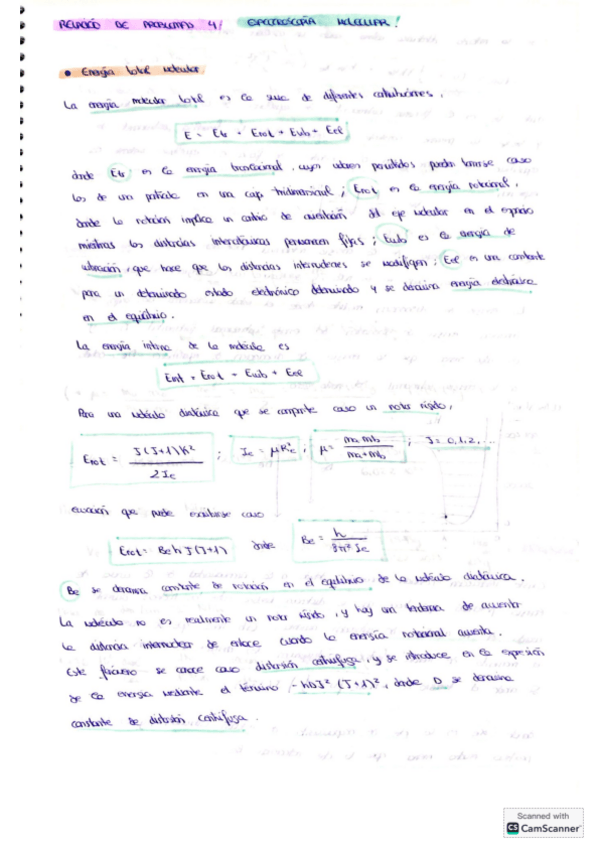 RELACIÓ DE PROBLEMAS 4/ ESPECTROSCOPÍA MOLECULAR!
• Energía total molecular
La energía molecular total es la suma de diferentes contribuciones.
E = Etr + Erot + Evib + Eel
donde Etr es la energía translacional, cuyos valores permitidos pueden tomarse como
los de una partícula en una caja tridimensional; Erot es la energía rotacional,
donde la rotación implica un cambio de orientación del eje molecular en el espacio
mientras las distancias interatómicas permanecen fijas; Evib es la energía de
vibración, que hace que las distancias internucleares se modifiquen; Eel es una constante
para un determinado estado electrónico determinado y se denomina energía electrónica
en el equilibrio.
La energía interna de la molécula es
Eint = Erot + Evib + Eel
Para una molécula diatómica que se comporte como un rotor rígido,
Erot = J(J+1)ħ² / 2Ie ; Ie = μRe² ; μ = ma mb / ma+mb ; J = 0,1,2,...
ecuación que puede escribirse como
Erot = Be h J(J+1) donde Be = h / 8π² Ie
Be se denomina constante de rotación en el equilibrio de la molécula diatómica.
La molécula no es realmente un rotor rígido, y hay una tendencia de aumentar
la distancia internuclear de enlace cuando la energía rotacional aumenta.
Este fenómeno se conoce como distorsión centrífuga, y se introduce en la expresión
de la energía mediante el término, -hDJ² (J+1)², donde D se denomina
constante de distorsión centrífuga.
Scanned with
CS CamScanner